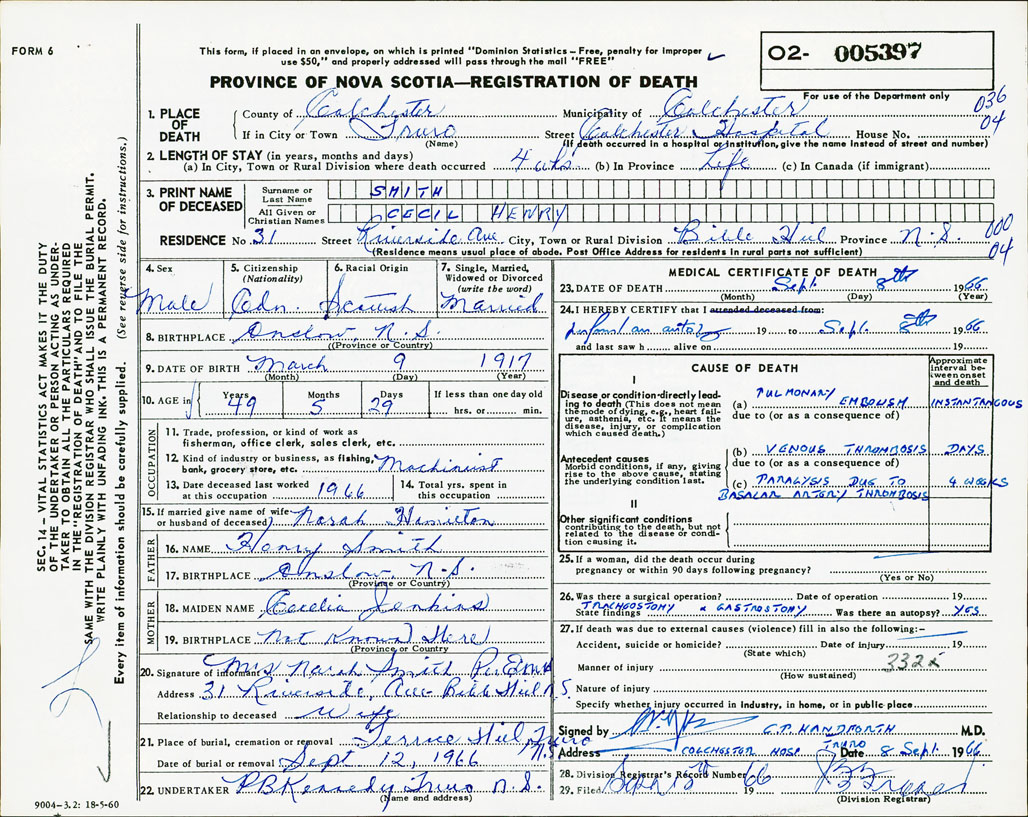 FORM 6
This form, if placed in an envelope, on which is printed "Dominion Statistics – Free, penalty for improper
use $50," and properly addressed will pass through the mail "FREE"
O2- 005397
For use of the Department only
PROVINCE OF NOVA SCOTIA—REGISTRATION OF DEATH
SEC. 14 – VITAL STATISTICS ACT MAKES IT THE DUTY
OF THE UNDERTAKER OR PERSON ACTING AS UNDER-
TAKER TO OBTAIN ALL THE PARTICULARS REQUIRED
IN THE "REGISTRATION OF DEATH" AND TO FILE THE
SAME WITH THE DIVISION REGISTRAR WHO SHALL ISSUE THE BURIAL PERMIT.
WRITE PLAINLY WITH UNFADING INK. THIS IS A PERMANENT RECORD.
Every item of information should be carefully supplied. (See reverse side for instructions.)
1. PLACE OF DEATH County of Colchester Municipality of Colchester 036
If in City or Town Truro (Name) Street Colchester Hospital House No. 04
(If death occurred in a hospital or institution, give the name instead of street and number)
2. LENGTH OF STAY (in years, months and days)
(a) In City, Town or Rural Division where death occurred 4 wks (b) In Province Life (c) In Canada (if immigrant)
3. PRINT NAME OF DECEASED Surname or Last Name SMITH
All Given or Christian Names CECIL HENRY
RESIDENCE No. 31 Street Riverside Ave City, Town or Rural Division Bible Hill Province N.S. 000
04
(Residence means usual place of abode. Post Office Address for residents in rural parts not sufficient)
4. Sex Male
5. Citizenship (Nationality) Cdn.
6. Racial Origin Scottish
7. Single, Married, Widowed or Divorced (write the word) Married
8. BIRTHPLACE Onslow, N.S.
(Province or Country)
9. DATE OF BIRTH March 9 1917
(Month) (Day) (Year)
10. AGE in Years 49 Months 5 Days 29 If less than one day old hrs. or min.
OCCUPATION
11. Trade, profession, or kind of work as fisherman, office clerk, sales clerk, etc.
12. Kind of industry or business, as fishing, bank, grocery store, etc. Machinist
13. Date deceased last worked at this occupation 1966
14. Total yrs. spent in this occupation
15. If married give name of wife or husband of deceased Norah Hamilton
FATHER
16. NAME Henry Smith
17. BIRTHPLACE Onslow, N.S.
(Province or Country)
MOTHER
18. MAIDEN NAME Cecelia Jenkins
19. BIRTHPLACE Not Known Here
(Province or Country)
20. Signature of informant Mrs Norah Smith Per
Address 31 Riverside Ave Bible Hill N.S.
Relationship to deceased Wife
21. Place of burial, cremation or removal Terrace Hill, Truro N.S.
Date of burial or removal Sept 12, 1966
22. UNDERTAKER PB Kennedy Truro N.S.
(Name and address)
9004–3.2: 18-5-60
MEDICAL CERTIFICATE OF DEATH
23. DATE OF DEATH Sept. 8th 1966
(Month) (Day) (Year)
24. I HEREBY CERTIFY that I attended deceased from:
19 to Sept. 8th 1966
and last saw h alive on 19
CAUSE OF DEATH
Approximate interval between onset and death
I
Disease or condition directly leading to death (This does not mean the mode of dying, e.g., heart failure, asthenia, etc. It means the disease, injury, or complication which caused death.)
(a) PULMONARY EMBOLISM INSTANTANEOUS
due to (or as a consequence of)
Antecedent causes
Morbid conditions, if any, giving rise to the above cause, stating the underlying condition last.
(b) VENOUS THROMBOSIS DAYS
due to (or as a consequence of)
(c) PARALYSIS DUE TO 4 WEEKS
BASALAR ARTERY THROMBOSIS
II
Other significant conditions contributing to the death, but not related to the disease or condition causing it.
25. If a woman, did the death occur during pregnancy or within 90 days following pregnancy?
(Yes or No)
26. Was there a surgical operation? Date of operation 19
State findings TRACHEOSTOMY & GASTROSTOMY Was there an autopsy? YES
27. If death was due to external causes (violence) fill in also the following:–
Accident, suicide or homicide? Date of injury 19
(State which)
332x
Manner of injury
(How sustained)
Nature of injury
Specify whether injury occurred in industry, in home, or in public place
Signed by C.P. HANDFORTH M.D.
Address COLCHESTER HOSP TRURO Date 8 Sept. 1966
28. Division Registrar's Record Number
29. Filed 19 66
(Division Registrar)